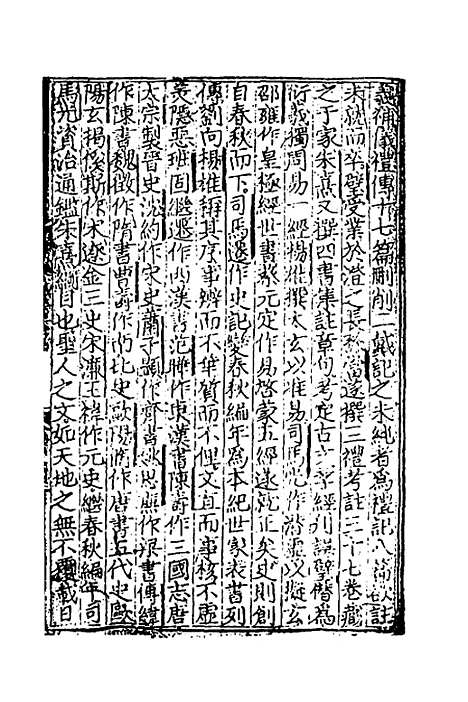 義補儀禮傳十七篇刪削二戴記之未純者為禮記八篇欲註
未就而卒璧受業於澄之長遂撰三禮考註三十七卷藏
之于家朱熹又選四書集註章句考定古文孝經刊誤璧僭為
衍義獨周易一經揚雄撰太玄以準易司馬光作潛虛以擬玄
邵雍作皇極經世書蔡元定作易啓蒙五經遂就正矣史則創
自春秋而下司馬遷作史記變春秋編年為本紀世家表書列
傳劉向楊雄稱其序事辨而不華質而不俚文直而事核不虛
美隱惡班固繼遷作西漢書范曄作東漢書陳壽作三國志唐
太宗製晉史沈約作宋史蕭子顯作齊書姚思廉作梁書傅縡
作陳書魏徵作隋書曹壽作南北史歐陽脩作唐書五代史歐
陽玄揭傒斯作宋遼金三史宋濂王禕作元史繼春秋編年司
馬光資治通鑑朱熹綱目也聖人之文如天地之無不覆載日